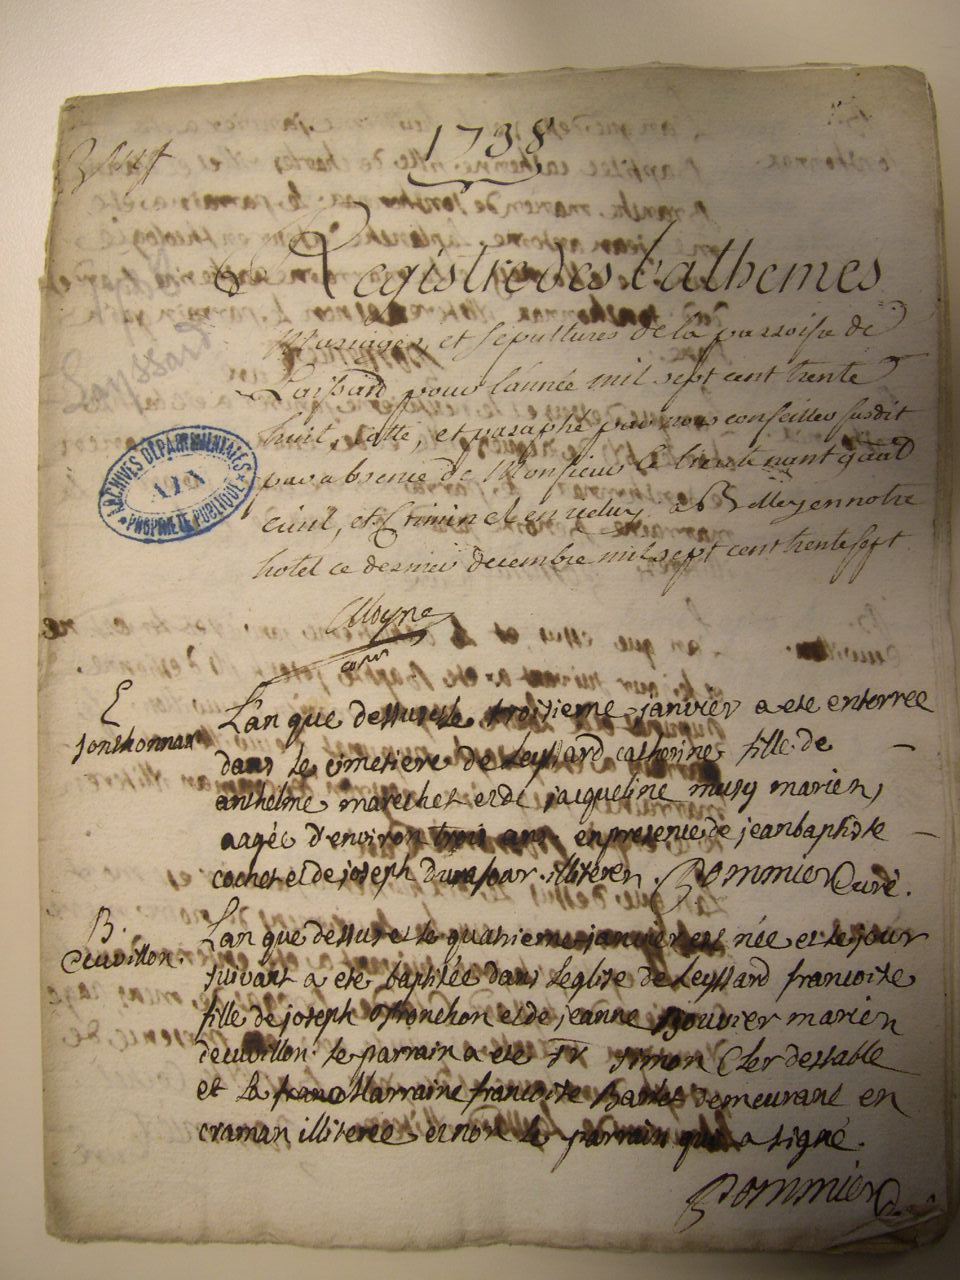 1738
Registre des Bathemes
Mariages, et sepultures de la parroisse de
Laissard pour l'année mil sept cent trente
huit, cotte, et paraphé par nous conseiller susdit
par absence de Monsieur le lieutenant gnal
civil, et Criminel en
hotel ce dernier decembre mil sept cent trente sept
Layssard
ARCHIVES DÉPARTEMENTALES
AIN
PROPRIÉTÉ PUBLIQUE
E
L'an que dessus et le troisieme janvier a ete enterrée
dans le cimetiere de Leyssard catherine fille de
anthelme marechet et de jacqueline musy mariers
aagée d'environ trois ans en presence de jean baptiste
cochet et de joseph illiteres. Pommier curé.
B.
Cuvillon.
L'an que dessus et le quatrieme janvier est née et le jour
suivant a ete baptisée dans leglise de Leyssard francoise
fille de joseph et de jeanne Bouvier mariers
de cuvillon le parrain a ete Sr simon Cler destable
et la Marraine francoise demeurant en
craman illiteree et non le parrain qui a signé.
Pommier